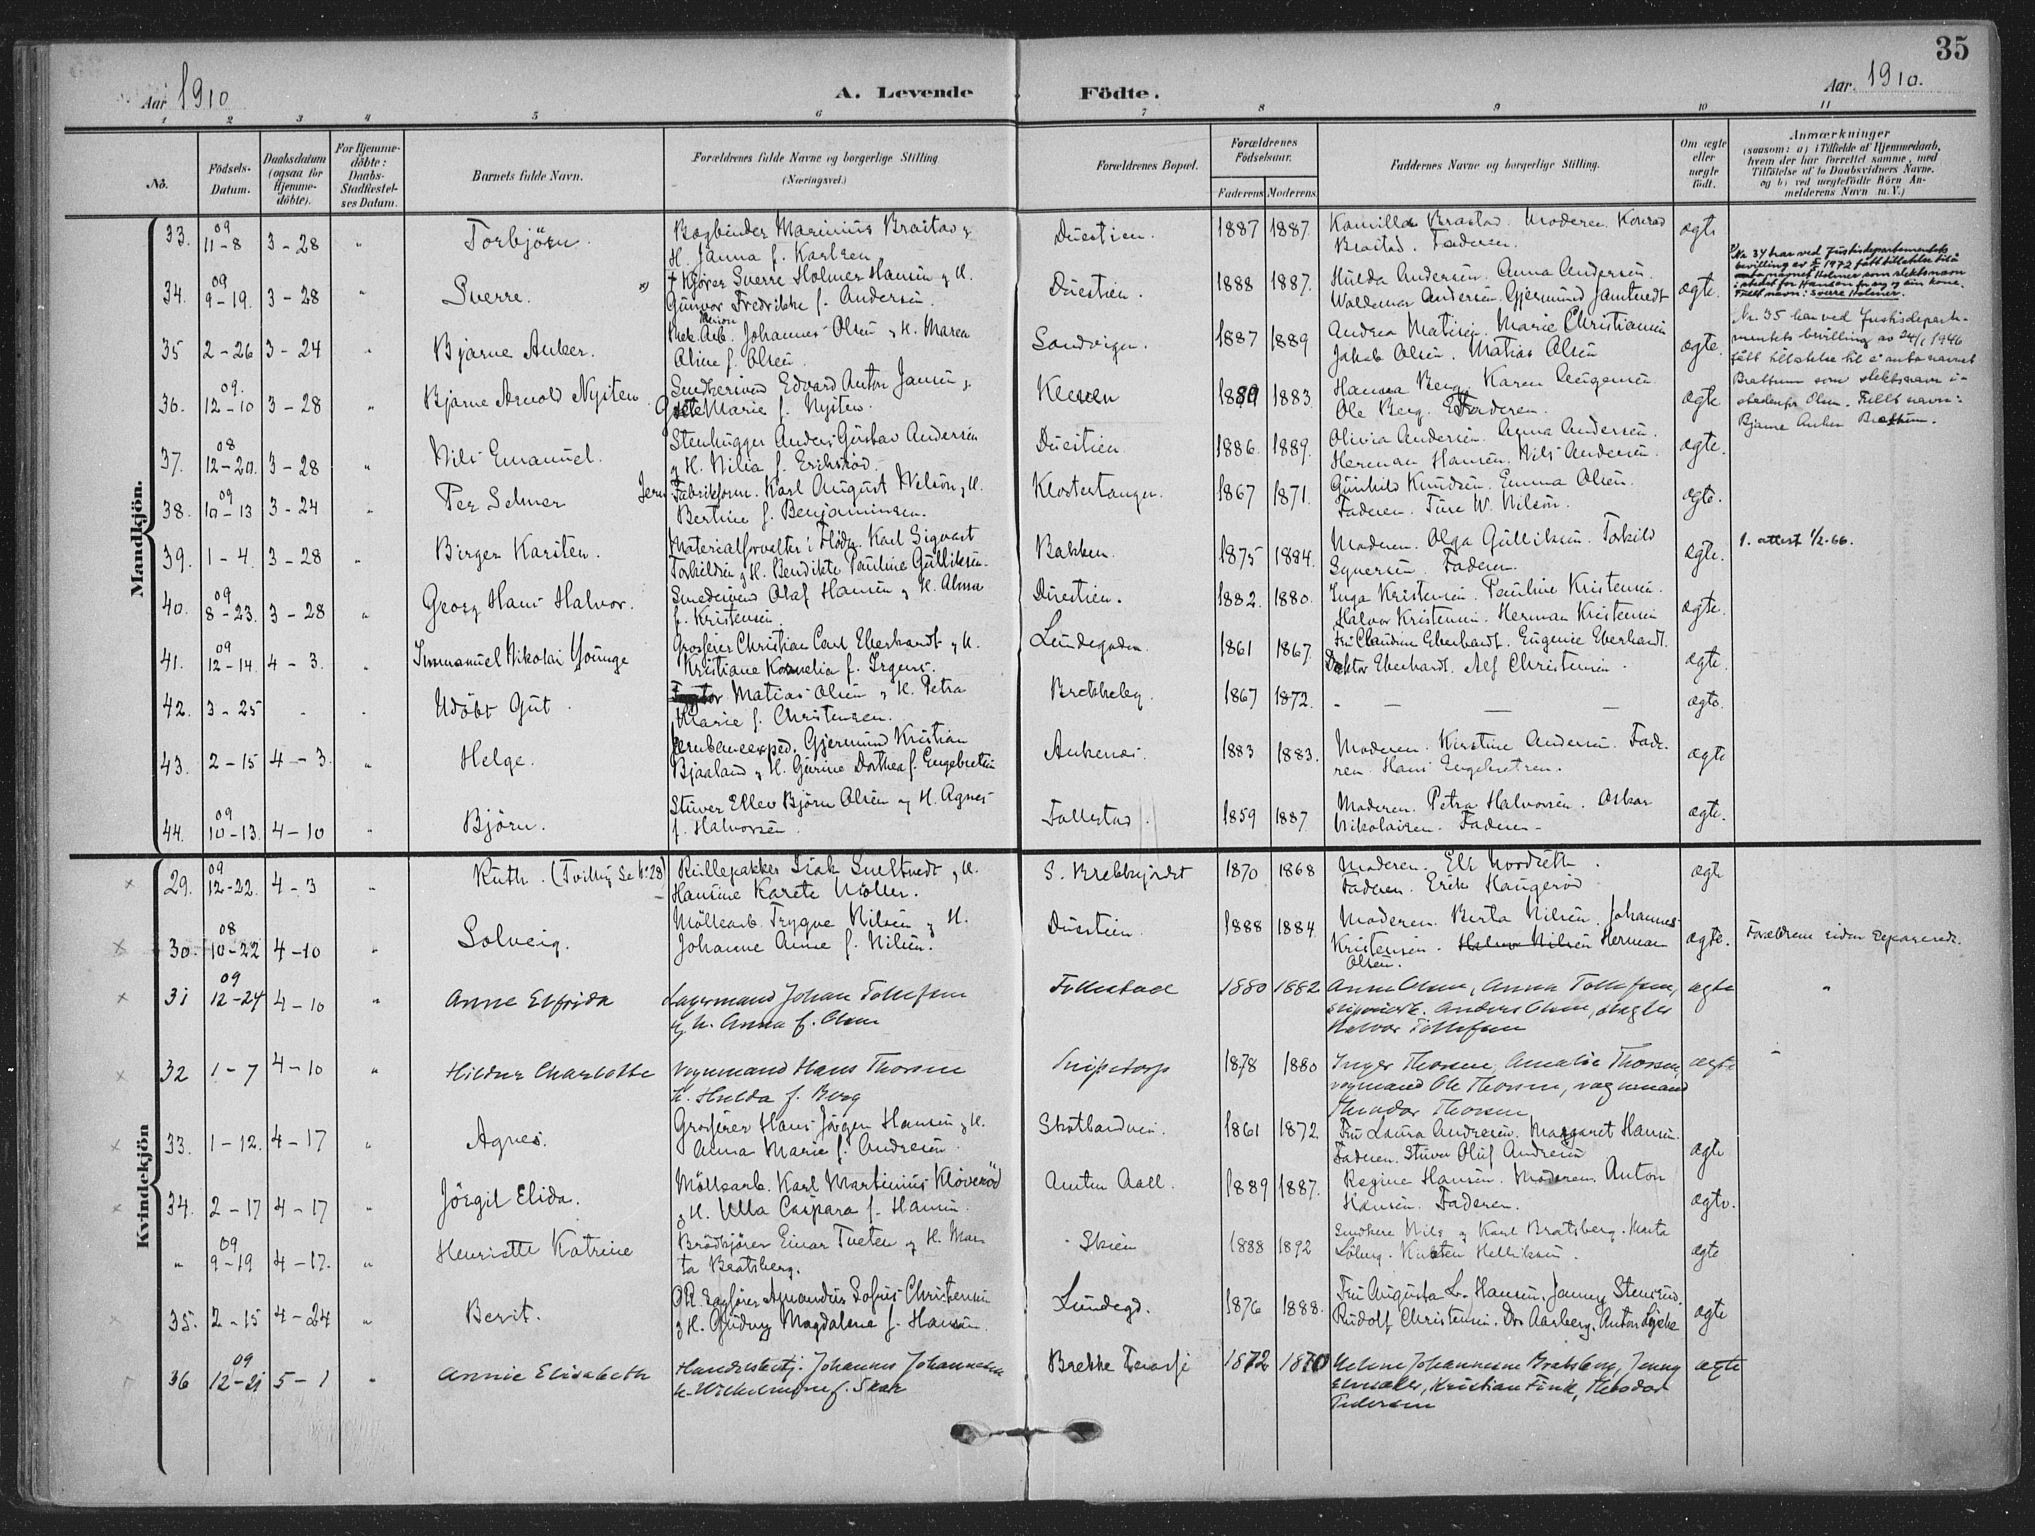 35
Aar 1910
A. Levende Födte.
Aar 1910.
1 2 3 4 5 6 7 8 9 10 11
No.
Födsels-
Datum.
Daabsdatum
(ogsaa for
Hjemme-
döbte).
For Hjemme-
döbte:
Daabs-
Stadfæstel-
ses Datum.
Barnets fulde Navn.
Forældrenes fulde Navne og borgerlige Stilling
(Næringsvei.)
Forældrenes Bopæl.
Forældrenes
Födselsaar.
Faderens Moderens
Faddernes Navne og borgerlige Stilling.
Om ægte
eller
uægte
födt.
Anmærkninger
(saasom: a) i Tilfælde af Hjemmedaab,
hvem der har forrettet samme, med
Tilföielse af to Daabsvidners Navne,
og b) ved uægtefödte Börn An-
melderens Navn m. V.)
Mandkjön.
33. 09 11-8 3-28 " Torbjörn. Bogbinder Marinius Braatad &
H. Janna f. Karlsen
Duestien. 1887 1887 Kamilla Braatad. Moderen. Konrad
Braatad. Faderen. ægte
34. 09 9-19. 3-28 " Sverre. Kjører Sverre Holmer Hansen & H.
Gunvor Fredrikke f. Andersen.
Duestien. 1888 1887. Hulda Andersen. Anna Andersen.
Waldemar Andersen. Gjermund Jamtvedt ægte.
Nr. 34 har ved Justisdepartementets
bevilling av 1972 fått tillatelse til å
anta navnet Holmer som slektsnavn
i stedet for Hansen for seg og sin kone.
Fullt navn: Sverre Holmer.
35 2-26 3-24 " Bjarne Anker. Mek. Arb. Johannes Olsen & H. Maren
Aline f. Olsen
Sandvigen. 1887 1889 Andrea Matisen. Marie Christiansen
Jakob Olsen. Matias Olsen ægte.
Nr. 35 har ved Justisdepart-
mentets bevilling av 24/1 1946
fått tillatelse til å anta navnet
Brattum som slektsnavn i-
stedenfor Olsen. Fullt navn:
Bjarne Anker Brattum.
36. 09. 12-10 3-28 " Bjarne Arnold Nysten Smedsvend Edvard Anton Jansen &
Marie f. Nysten.
Kleven 1880 1883 Hanna Berg. Karen Jörgensen
Ole Berg. Faderen. ægte
37. 08 12-20. 3-28 " Nils Emanuel. Stenhugger Anders Gustav Andersen
& H. Nilia f. Eriksröd.
Duestien 1886 1889. Olivia Andersen. Anna Andersen.
Herman Hansen. Nils Andersen. ægte.
38. 09 10-13 3-24 " Per Selmer Fabrikform. Karl August Nilson & H.
Bertine f. Benjaminsen.
Klostertangen. 1867 1871. Gunhild Knudsen. Emma Olsen.
Faderen. Ture W. Nilson. ægte.
39. 1-4. 3-28 " Birger Karsten. Materialforvalter i Karl Sigvart
Torkildsen & H. Bendikte Pauline Gulliksen.
Bakken. 1875 1884. Moderen. Olga Gulliksen. Torkild
Syversen. Faderen. ægte. 1. attest 1/2-66.
40. 09 8-23. 3-28 " Georg Hans Halvor. Smedsvend Olaf Hansen & H. Alma
f. Kristensen.
Duestien. 1882. 1880. Inga Kristensen. Pauline Kristensen.
Halvor Kristensen. Herman Kristensen ægte.
41. 09 12-14. 4-3. " Immanuel Nikolai Younge Grosserer Christian Carl Eberhardt & H.
Kristiane Kornelia f. Irgens.
Lundegaden. 1861 1867. Fru Claudine Eberhardt. Eugenie Eberhardt.
Doktor Eberhardt. Alf Christensen. ægte.
42. 3-25 Udöbt Gut. Matias Olsen & H. Petra
Marie f. Christensen.
Brekkeby. 1867 1872. ægte.
43. 2-15 4-3. " Helge. Jernbaneexped. Gjermund Kristian
Bjaaland & H. Gurine Dorthea f. Engebretsen
Ankenæs. 1883 1883. Moderen. Kirstine Andersen. Fade-
ren. Hans Engebretsen. ægte
44. 09 10-13. 4-10 " Björn. Stuver Ellev Björn Olsen og H. Agnes
f. Halvorsen.
Follestad. 1859 1887 Moderen. Petra Halvorsen. Oskar
Nikolaisen. Faderen. ægte.
Kvindekjön
29. 09 12-22. 4-3 " Ruth. (Tvilling Se No 28) Rullepakker Isak Smeltvedt & H.
Hansine Karete Möller.
S. Brekkejordet 1870 1868 Moderen. Els Nordseth.
Faderen. Erik Haugeröd ægte
30. 08 10-22 4-10 " Solveig. Möllearb. Trygve Nilsen & H.
Johanne Anne f. Nilsen.
Duestien 1888 1884. Moderen. Berta Nilsen. Johannes
Kristensen. Halvor Nilsen Herman
Olsen. ægte. Forældrene siden separerede.
31 09 12-24 4-10 " Anne Elfrida Lagermand Johan Tollefsen
og h. Anna f. Olsen
Follestad 1880 1882 Anne Olsen, Anna Tollefsen,
Anders Olsen,
Halvor Tollefsen ægte "
32 1-7 4-10 " Hildur Charlotte Vognmand Hans Thorsen
h. Hulda f. Berg
Snipetorp 1878 1880 Inger Thorsen, Amalie Thorsen,
vognmand Ole Thorsen, vognmand
Theodor Thorsen ægte
33. 1-12. 4-17 " Agnes. Grosserer Hans Jörgen Hansen & H.
Anna Marie f. Andresen
Skotlandveien. 1861 1872 Fru Laura Andresen. Margaret Hansen.
Faderen. Stuver Oluf Andresen ægte
34. 2-17 4-17 " Jörgil Elida. Möllearb. Karl Martinius Klöveröd
& H. Ulla Caspara f. Hansen.
Anton Aall. 1889 1887. Regine Hansen. Moderen. Anton
Hansen. Faderen. ægte.
" 09 9-19 4-17. " Henriette Katrine Brödkjører Einar Tveten og H. Mar-
ta Bratsberg.
Skien 1888 1892 Smedkere Nils og Karl Bratsberg. Marta
Löberg. Helliksen. ægte
35. 2-15 4-24 " Berit. O.R. Sagförer Amandus Sofus Christensen
& H. Gudny Magdalene f. Hansen.
Lundegd. 1876 1888. Fru Augusta L. Hansen. Janny
Rudolf Christensen. Dr. Aarberg. Anton ægte
36 09 12-21 5-1 " Annie Elisabeth Handelsbetj. Johannes Johannesen
h. Wilhelmine f. Skar
Brekke Terasse 1872 1870 Helene Johannesen Bratsberg, Jenny
Kristian Fink, Theodor
Pedersen ægte